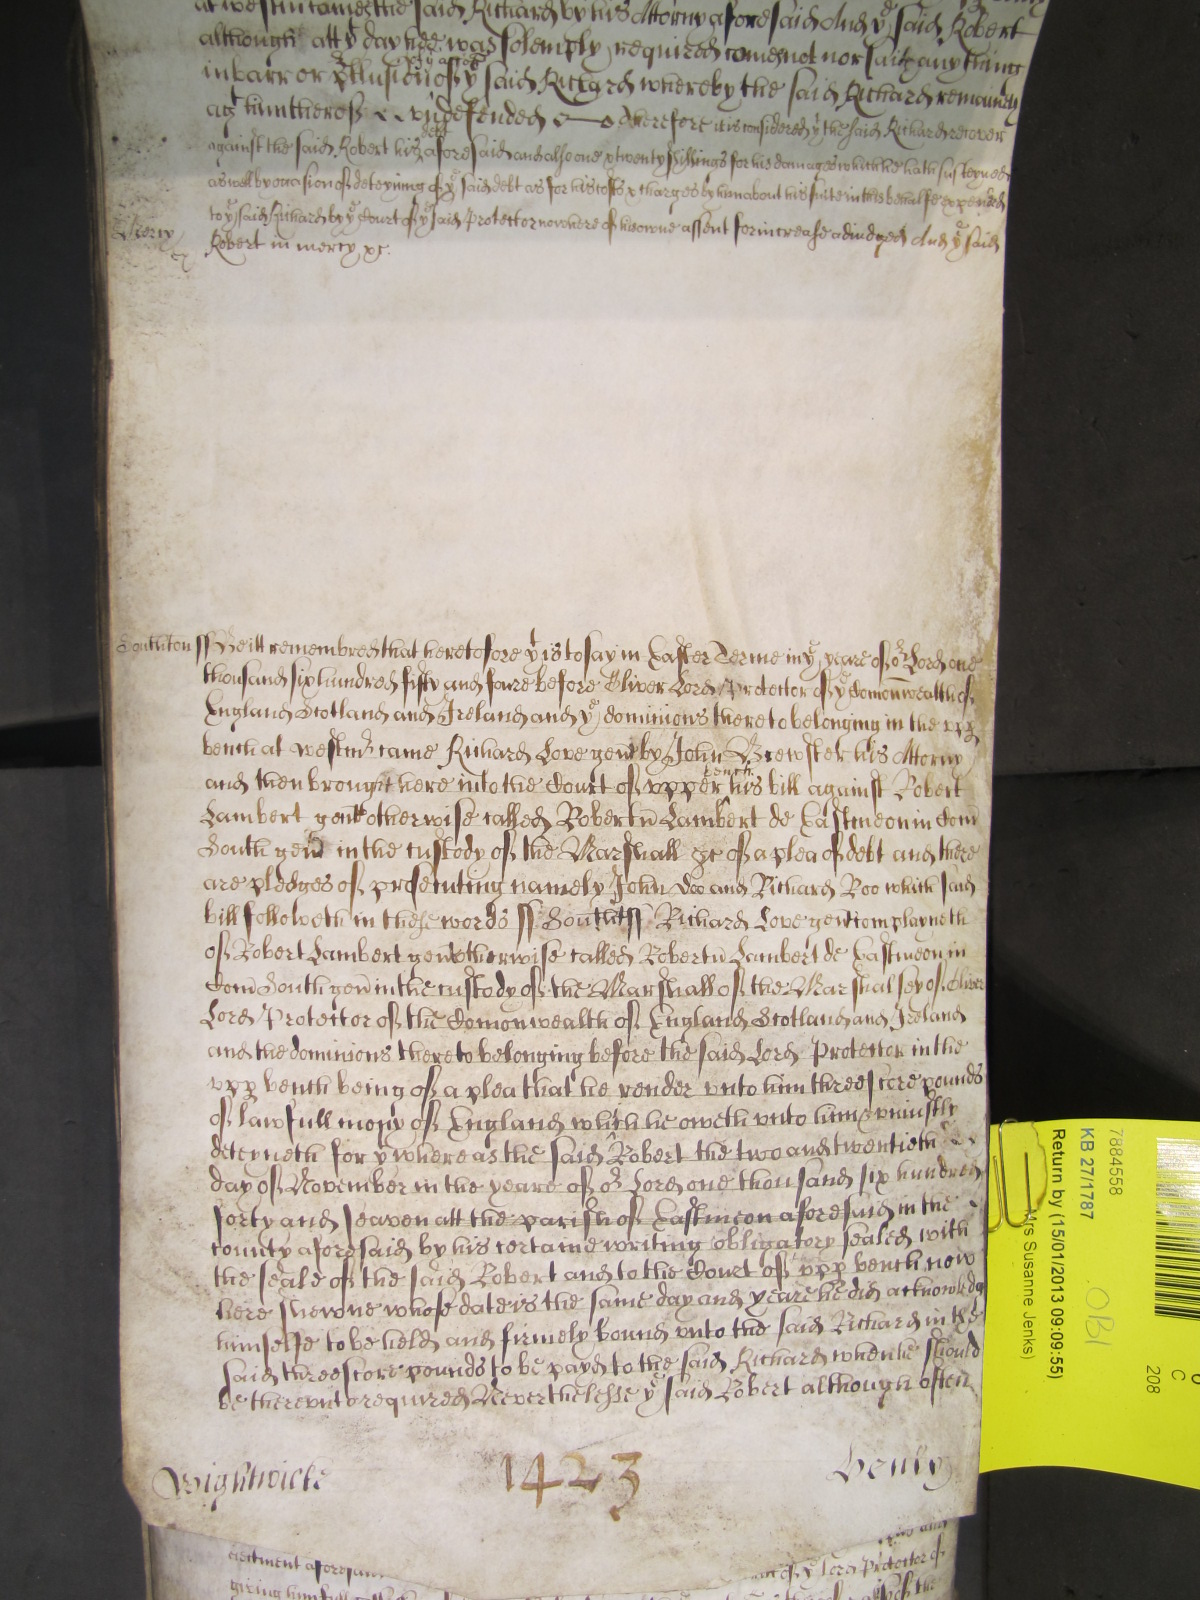 at westm came the said Richard by his Attorny aforesaid And yͤ said Robert
although att yͭ day he was solemply required came not nor saith any thing
in barr or p̱clusion of yͤ acc̃on of yͤ said Richard whereby the said Richard remaineth
agᵗ him therof vndefended Therefore it is considered yͭ the said Richard recover
against the said Robert his debt aforesaid and also one & twenty shillings for his damages which he hath susteyned
aswell by occasion of deteyning of yͤ said debt as for his costs & charges by him about his suite in this behalfe expended
to yͤ said Richard by yͤ Court of yͤ said Protector now here of his owne assent for increase adiudged And yͤ said
Mercy
Robert in mercy &c.
Southton ss Be itt remembred that heretofore yͭ is to say in Easter Terme in yͤ yeare of oʳ Lord one
thousand six hundred fifty and foure before Oliver Lord Protector of yͤ Com̃onwealth of
England Scotland and Ireland and yͤ dominions thereto belonging in the vpp̱
bench at westm̃ came Richard Love gent̃ by John Brewster his Attorny
and then brought here into the Court of vpper bench his bill against Robert
Lambert gent̃ otherwise called Robertũ Lambert de Eastmeon in Com̃
South gen̄ in the custody of the Marshall &c of a plea of debt and there
are pledges of prosecuting namely John Doo and Richard Roo which said
bill followeth in these words ss Southt ss Richard Love gent̃ complayneth
of Robert Lambert gent̃ otherwise called Robertũ Lambert de Eastmeon in
Com̃ South gen̄ in the custody of the Marshall of the Marshalsey of Oliver
Lord Protector of the Comonwealth of England Scotland and Ireland
and the dominions thereto belonging before the said Lord Protector in the
vpp̱ bench being of a plea that he render vnto him threescore pounds
of lawfull mony of England which he oweth vnto him & vniustly
deteyneth for yͭ whereas the said Robert the two and twentieth
day of November in the yeare of oʳ Lord one thousand six hundred
forty and seaven att the parish of Eastmeon aforesaid in the
county aforesaid by his certaine writing obligatory sealed with
the seale of the said Robert and to the Court of vpp̱ bench now
here shewne whose date is the same day and yeare he did acknowledg
himselfe to be held and firmely bound vnto the said Richard in the
said threescore pounds to be payd to the said Richard when he should
be therevnto required Neverthelesse yͤ said Robert although often
Wightwicke 1423 Henly
eiectment aforesaid
of yͤ Lord Protector of
7884558
KB 27/1787
Return by (15/01/2013 09:09:55)
Mrs Susanne Jenks)
OB1
C
208